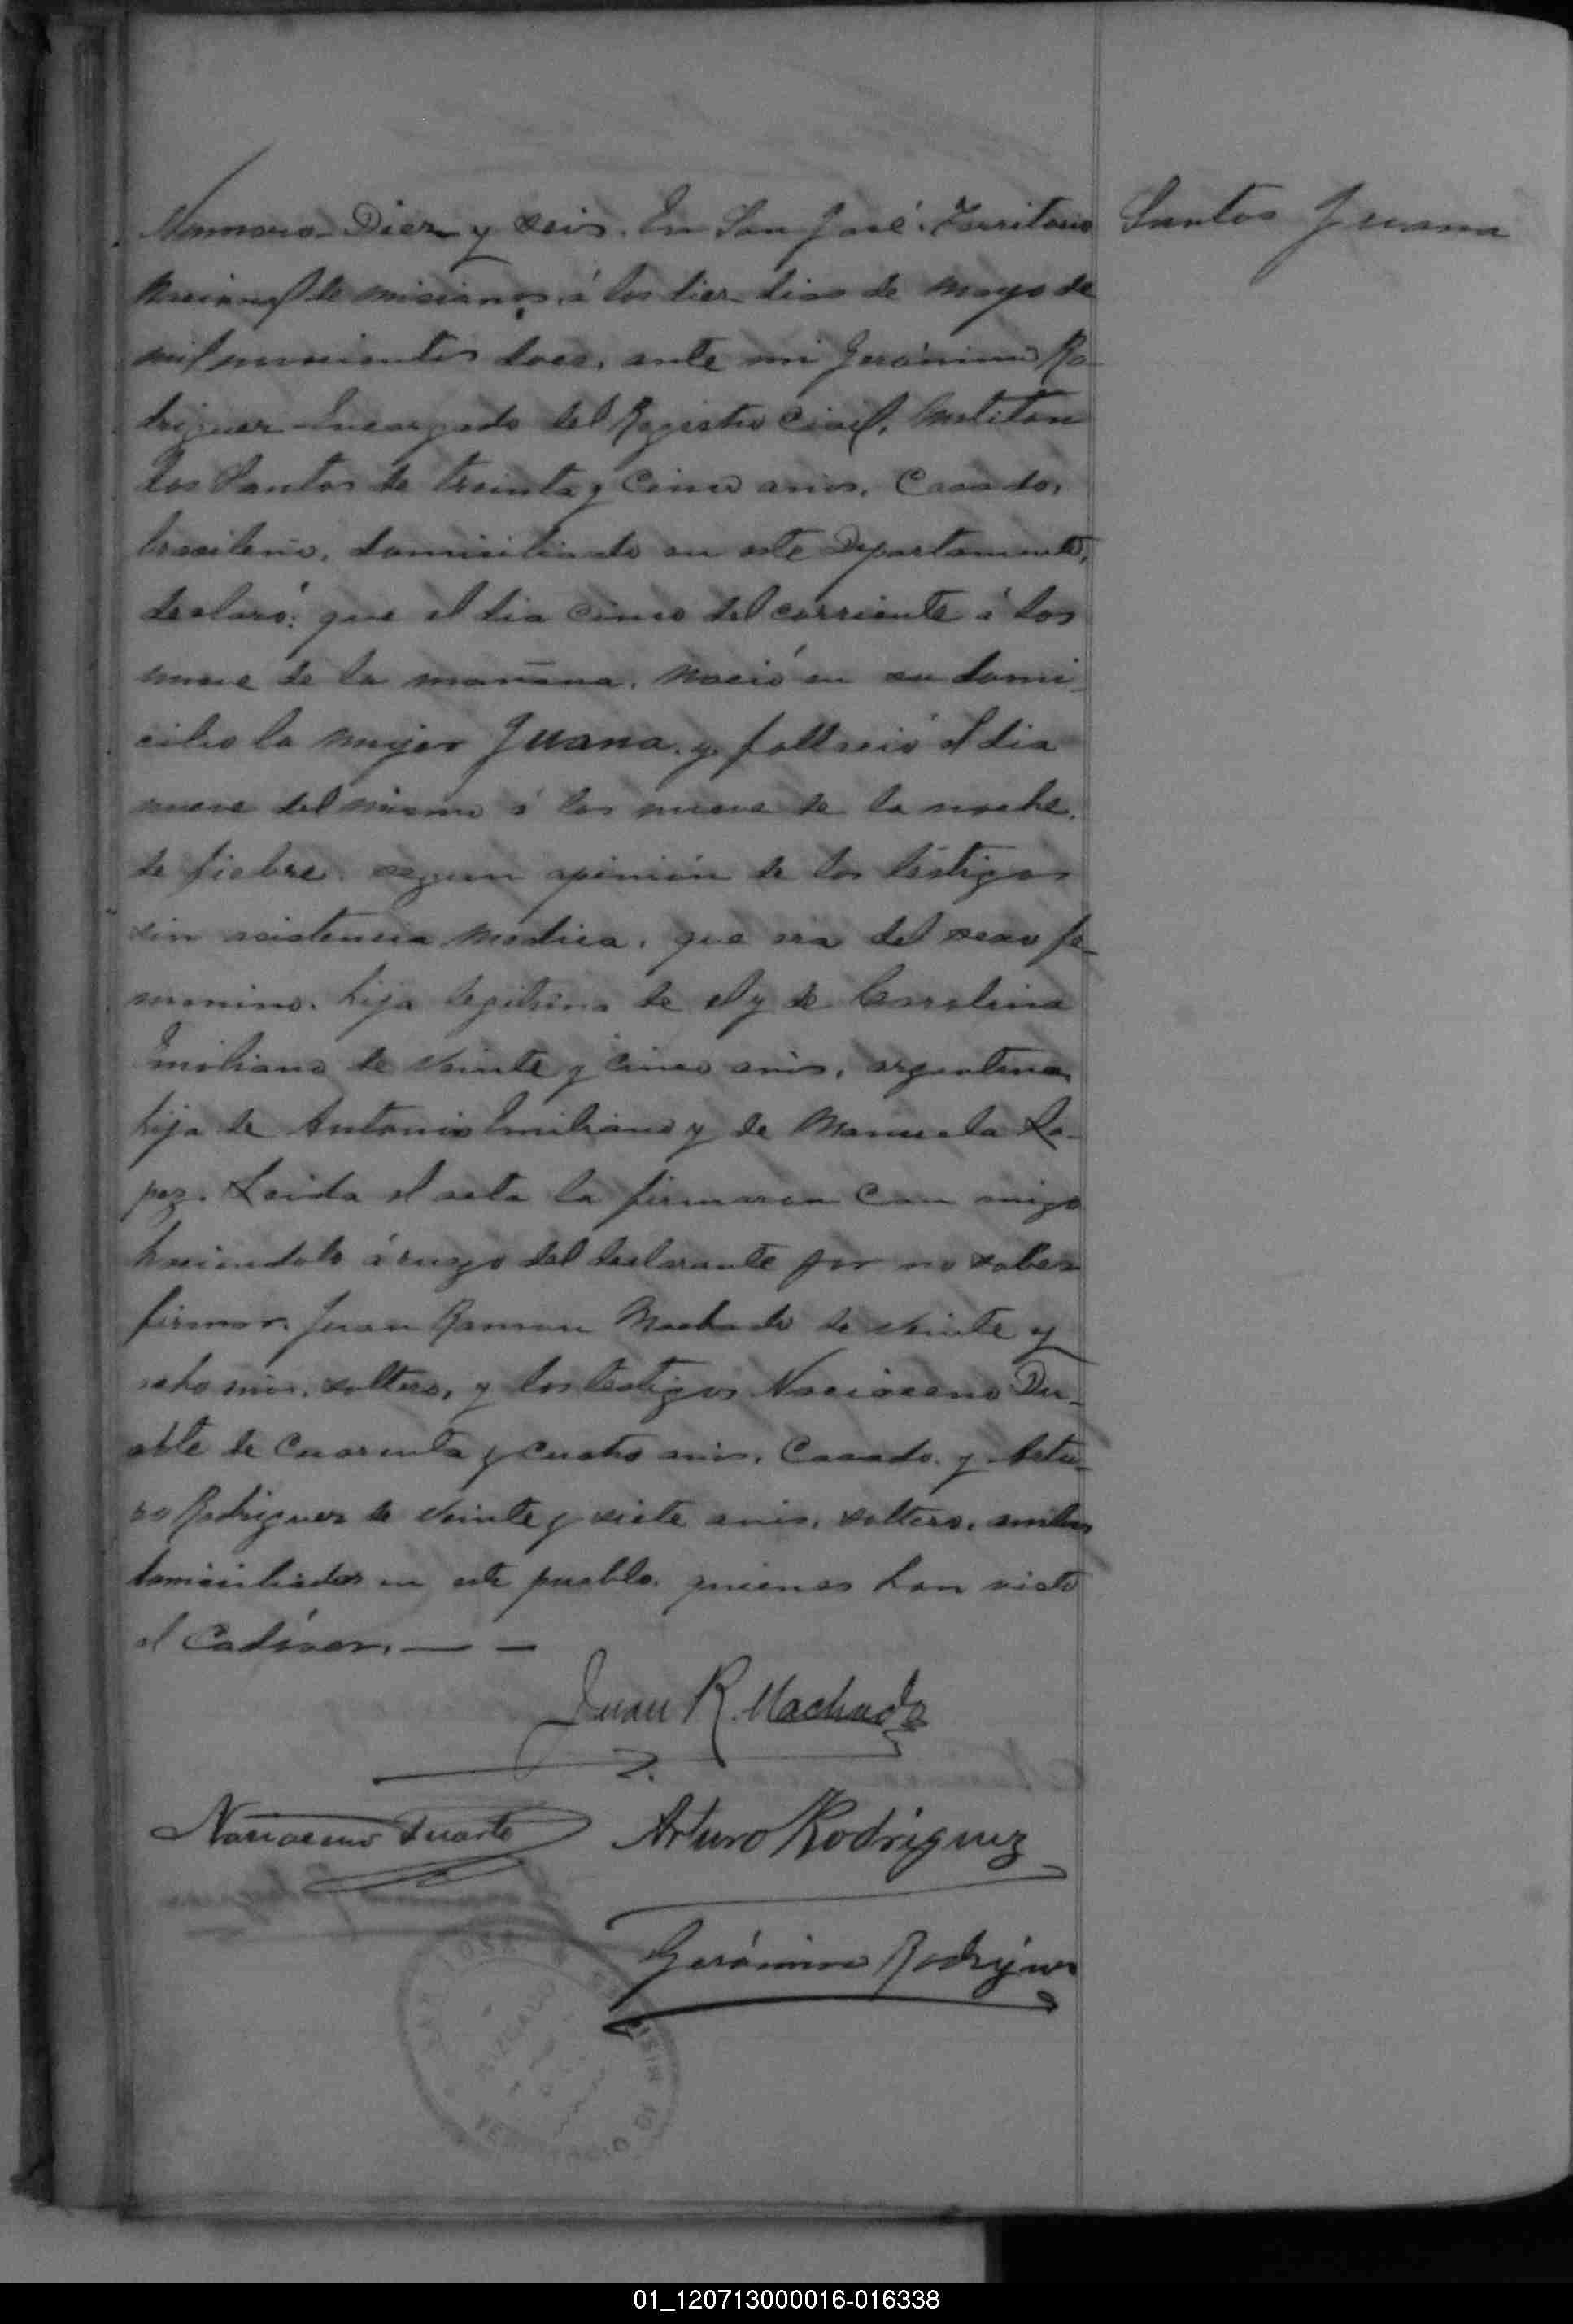 Numero Diez y seis. En San José. Territorio
Nacional de Misiones, á los diez dias de Mayo de
mil novecientos doce, ante mi Gerónimo Ro-
driguez Encargado del Registro Civil, Meliton
dos Santos de treinta y cinco años, Casado,
brasileño, domiciliado en este Departamento,
declaró: que el dia cinco del corriente á las
nueve de la mañana, nació en su domi-
cilio la mujer Juana, y falleció el dia
nueve del mismo á las nueve de la noche,
de fiebre, segun opinión de los testigos
sin asistencia medica, que era del sexo fe-
menino, hija legitima de el y de Carolina
Emiliano de veinte y cinco años, argentina,
hija de Antonio Emiliano y de Manuela Lo-
pez. Leida el acta la firmaron con migo
haciendolo á ruego del declarante por no saber
firmar, Juan Ramon Machado de veinte y
ocho años, soltero, y los testigos Nacianceno Du-
arte de cuarenta y cuatro años, Casado, y Artu-
ro Rodriguez de veinte y siete años, soltero, ambos
domiciliados en este pueblo, quienes han visto
el Cadáver. — —
Santos Juana
Juan R. Machado
Nacianceno Duarte Arturo Rodriguez
Gerónimo Rodriguez
01_120713000016-016338